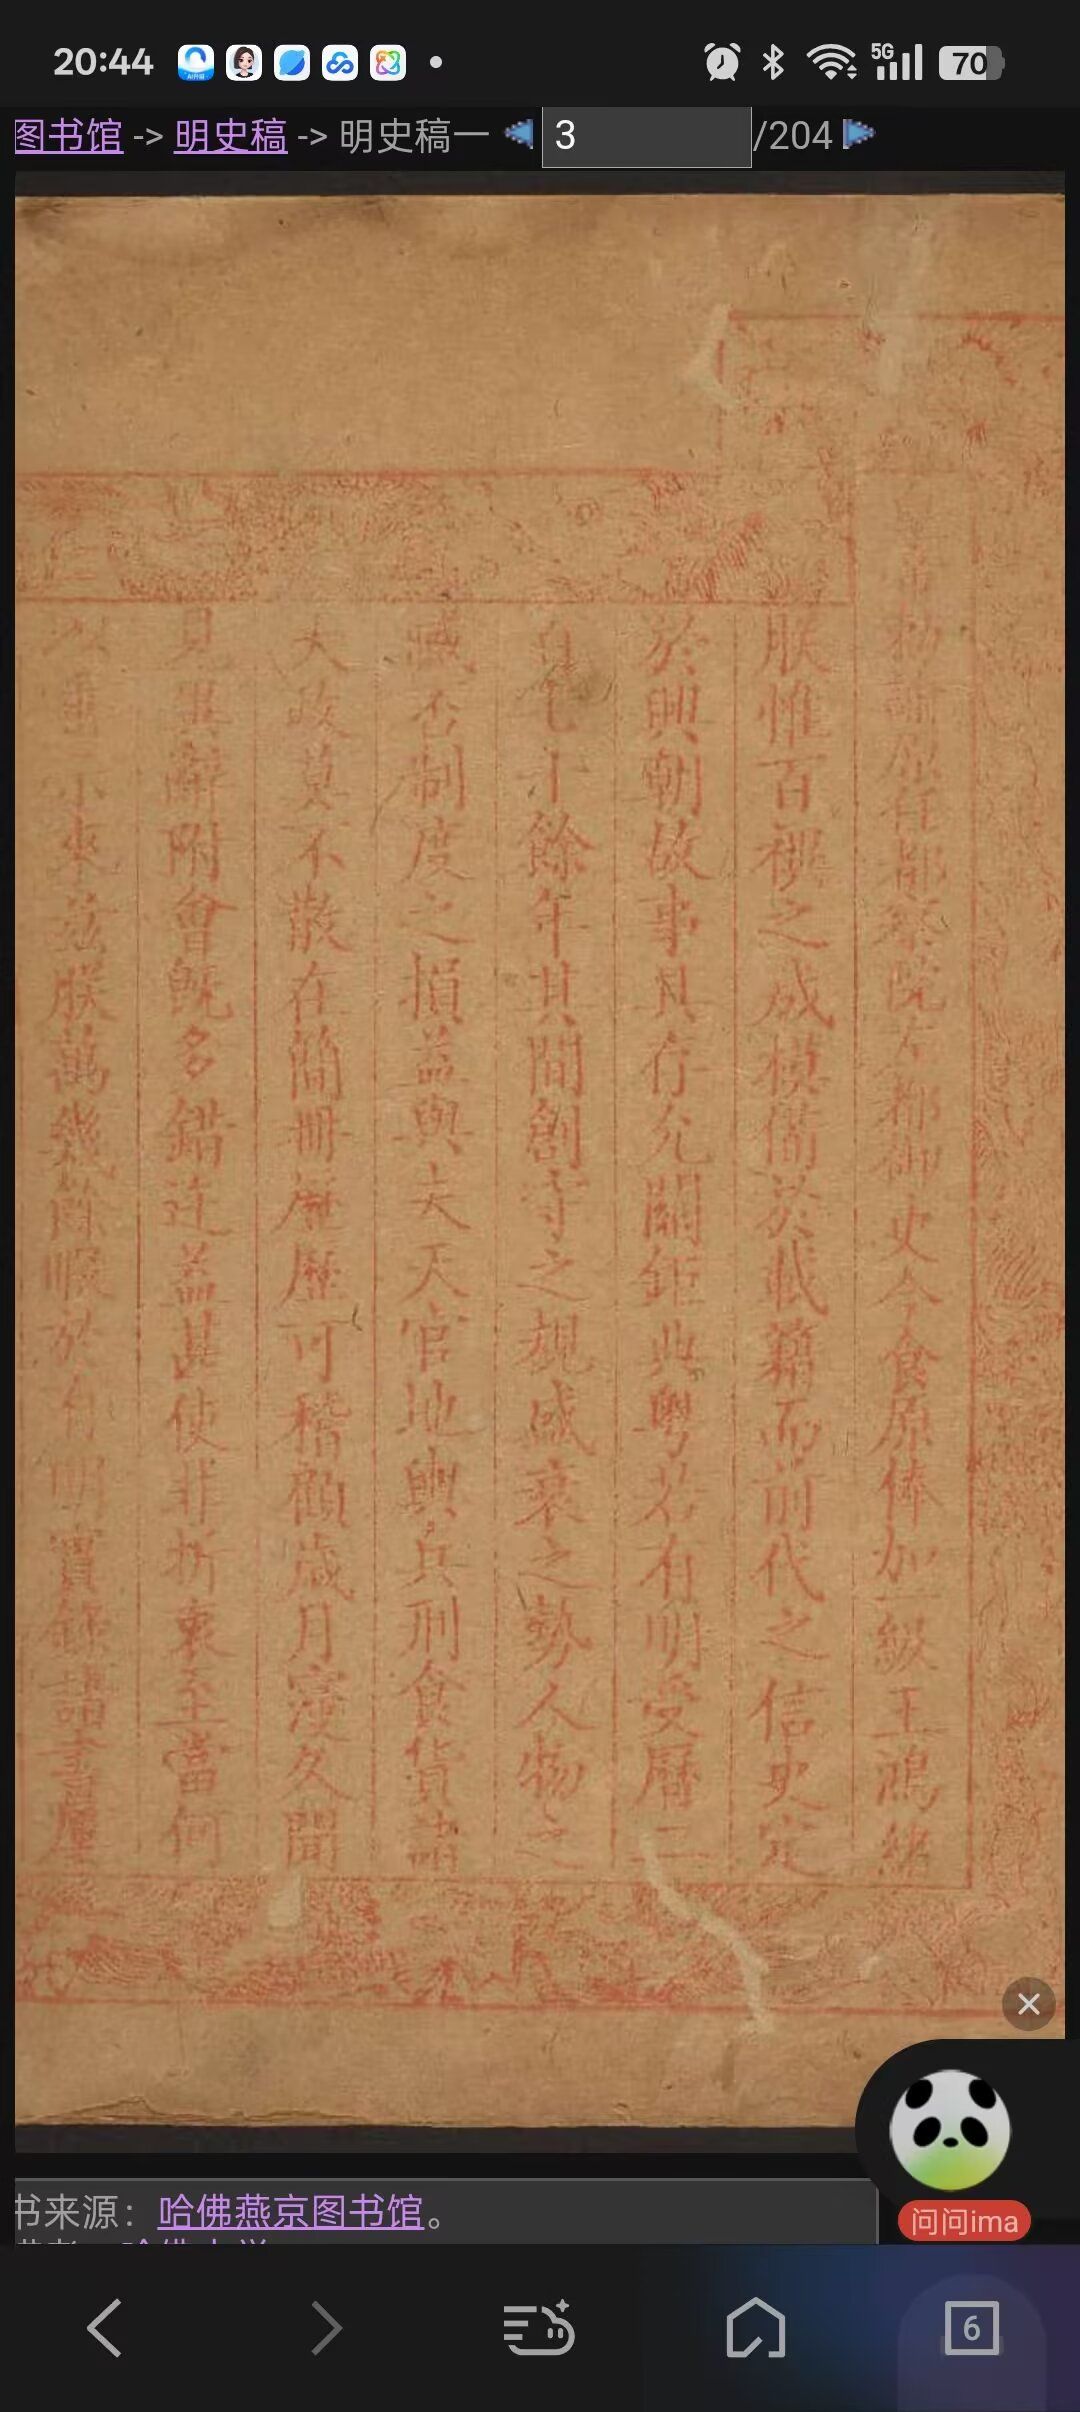 20:44
5G
70
图书馆 -> 明史稿 -> 明史稿一 3 /204
勅諭原任都察院左都御史今食原俸加一級王鴻緒
朕惟百禩之成模備於載籍而前代之信史定
於興朝故事具存允關鉅典粵若有明受曆二
百七十餘年其間創守之規盛衰之勢人物之
臧否制度之損益與夫天官地輿兵刑食貨諸
大政莫不散在簡冊歷歷可稽顧歲月寖久聞
見異辭附會旣多錯迕益甚使非折衷至當何
以垂示來茲朕萬幾餘暇於有明實錄諸書屢
书来源：哈佛燕京图书馆。
问问ima
6